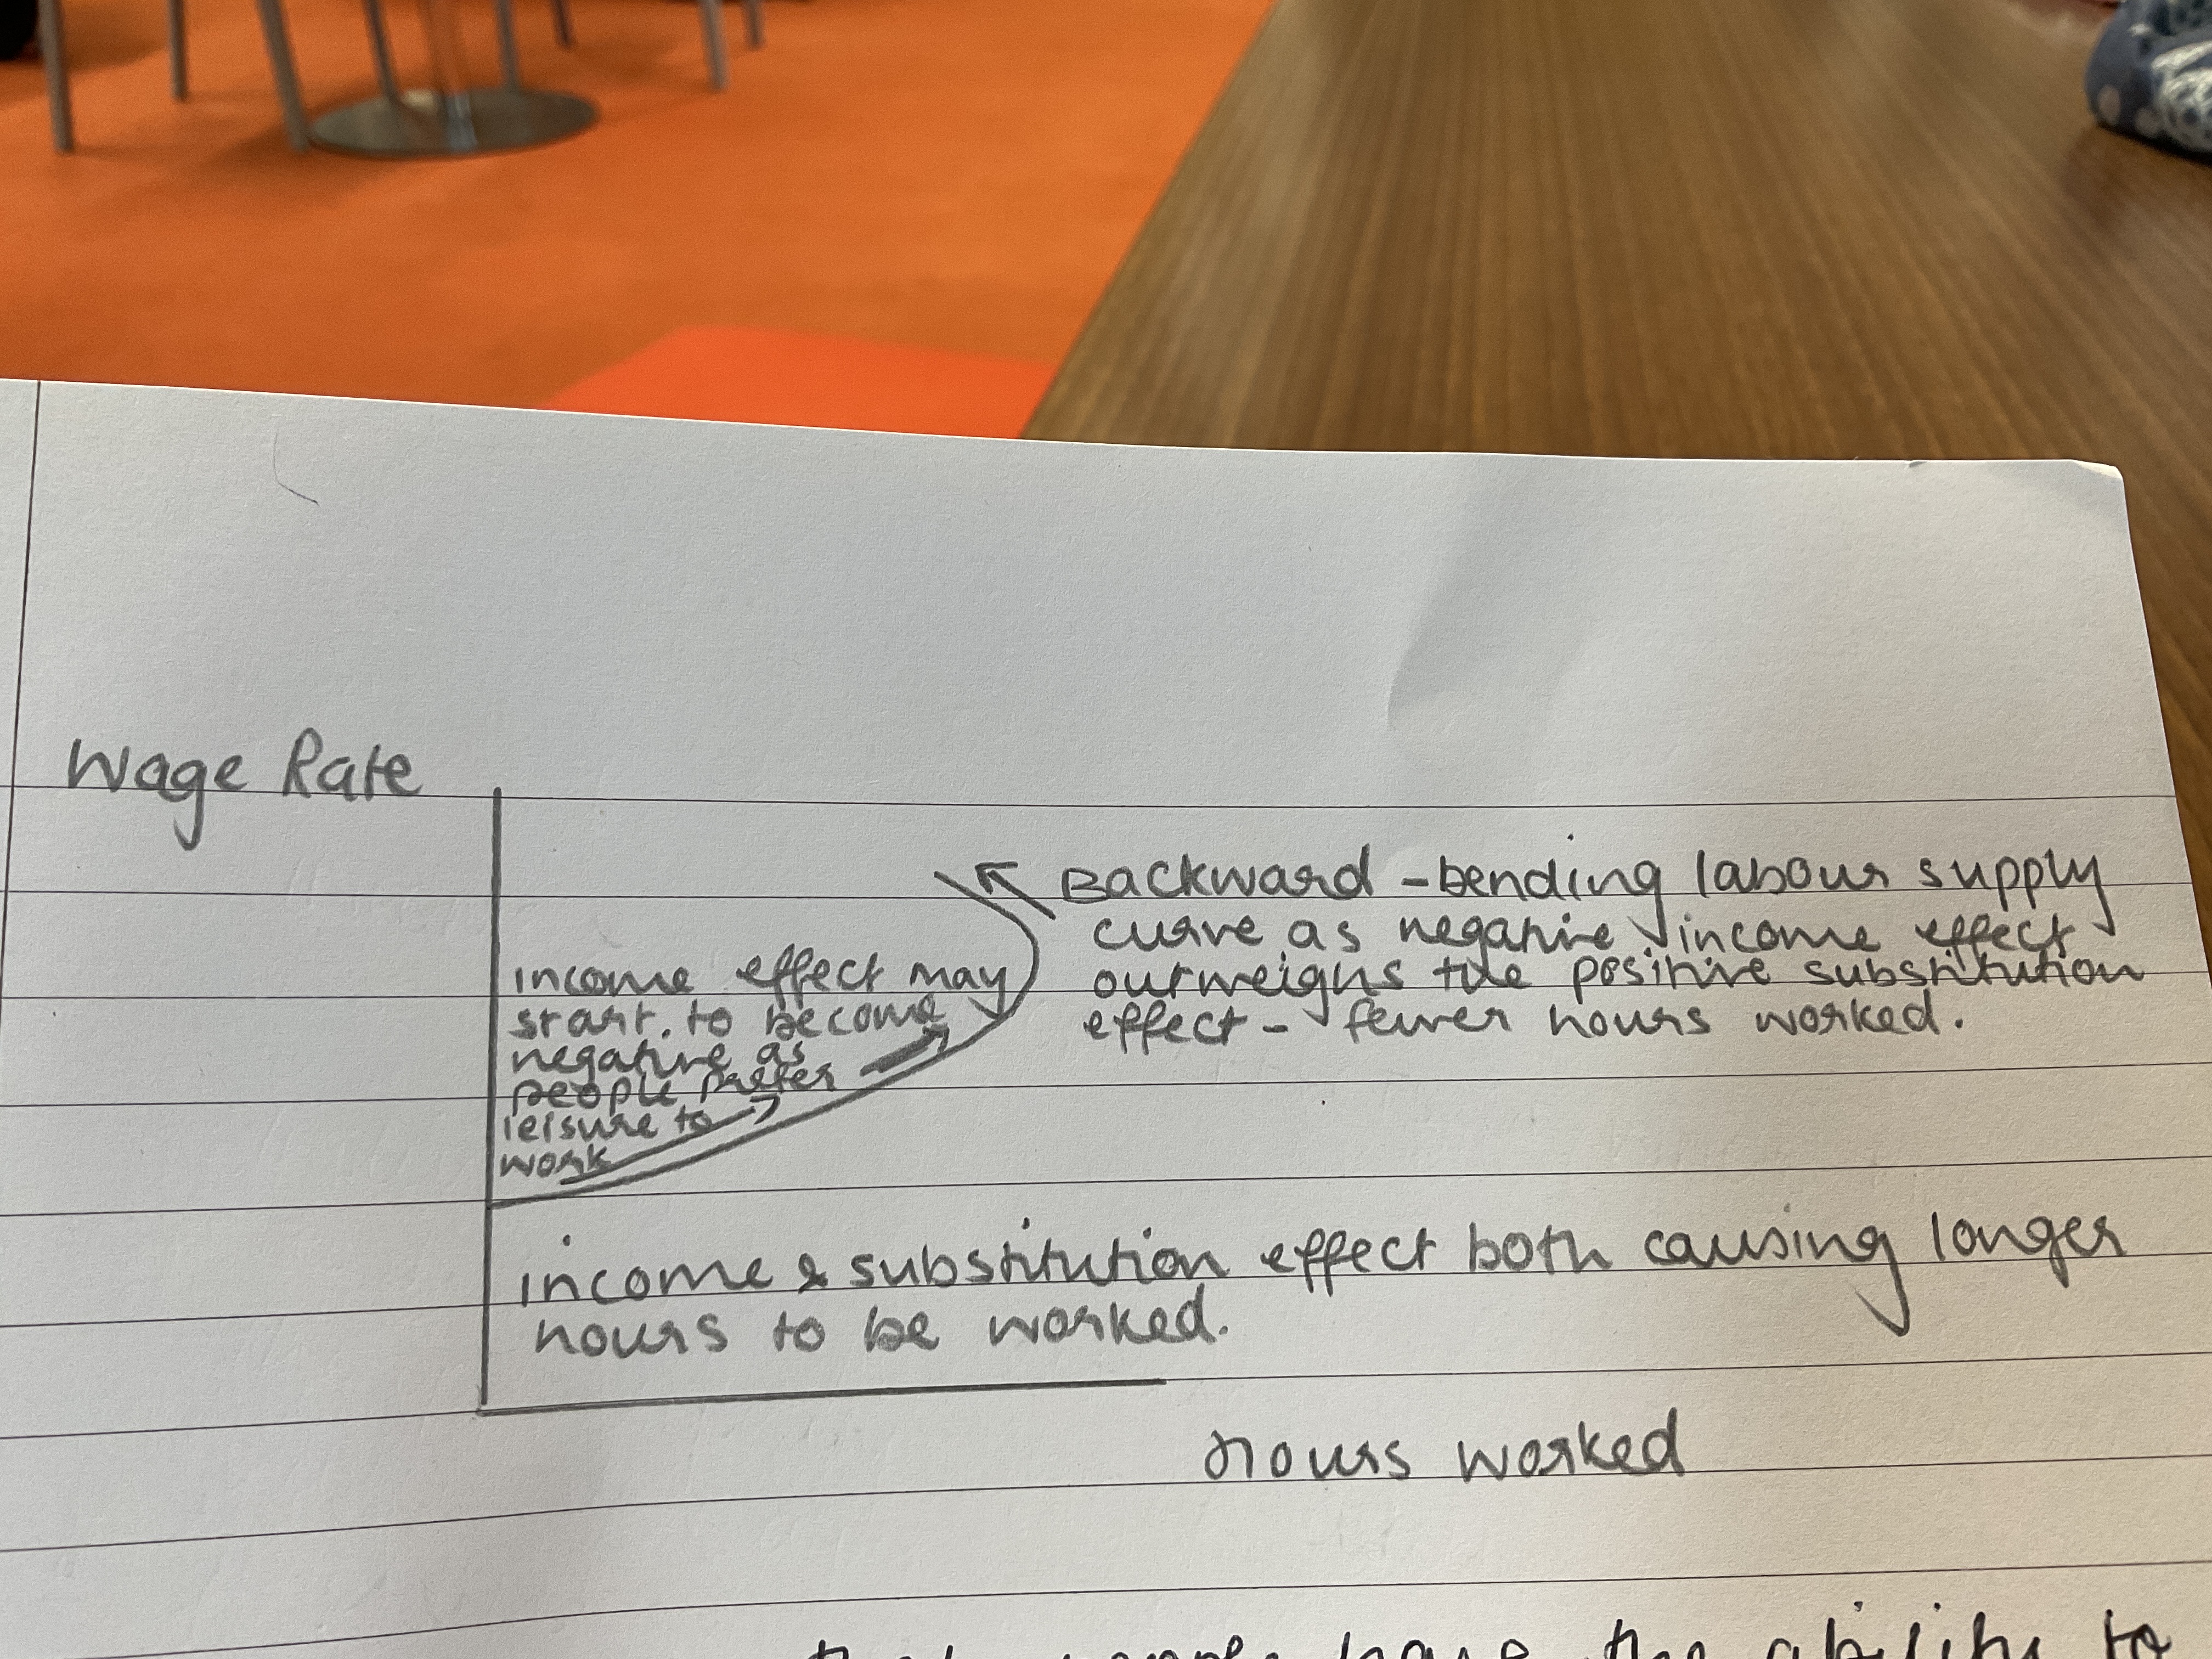 Wage Rate
Backward-bending labour supply
curve as negative income effect
outweighs the positive substitution
effect - fewer hours worked.
income effect may
start to become
negative as
people prefer
leisure to
work
income & substitution effect both causing longer
hours to be worked.
hours worked
have the ability to